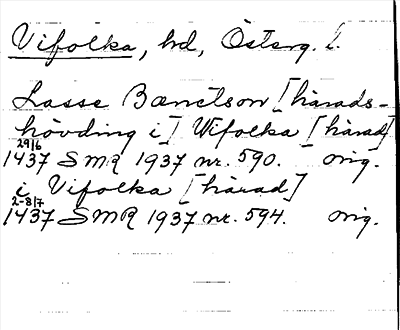 Vifolka, hd, Österg. l.
Lasse Bænctson [härads-
hövding i] Wifolka [härad]
29/6
1437 SMR 1937 nr. 590. orig.
i Vifolka [härad]
2-8/7
1437 SMR 1937 nr. 594. orig.